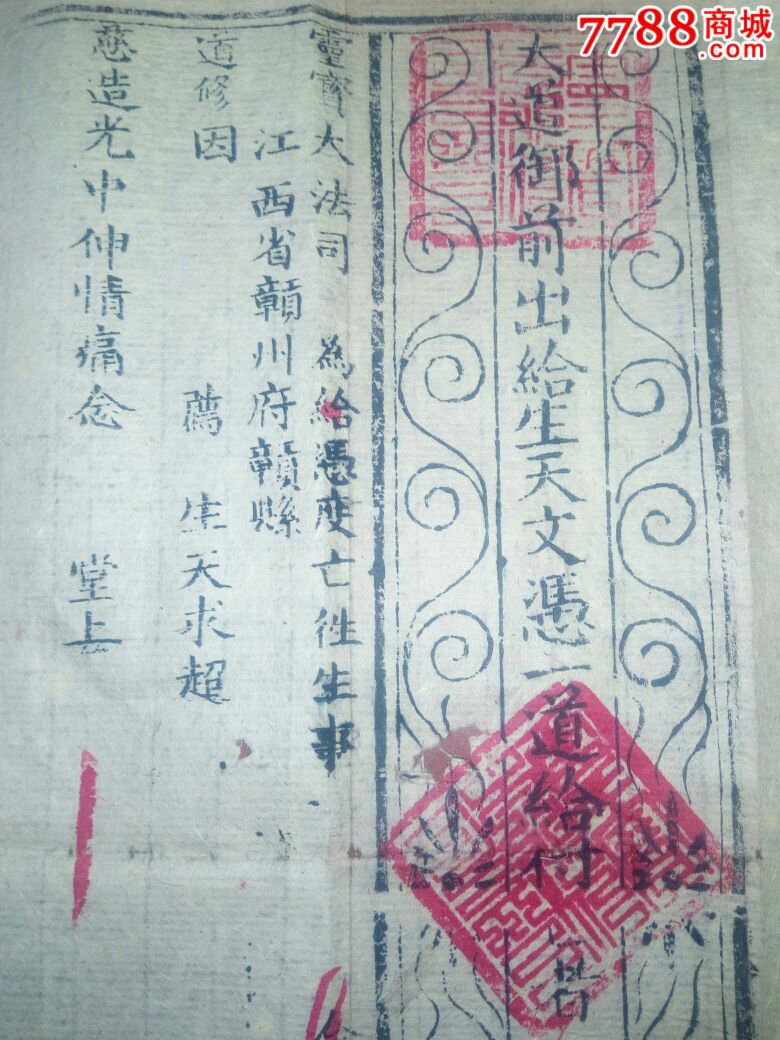 7788商城
.com
大道御前出給生天文憑一道給付
靈寶大法司 為給憑度亡徃生事
江西省贛州府贛縣
道修因 薦 生天求超
慈造光中伸情痛念 堂上